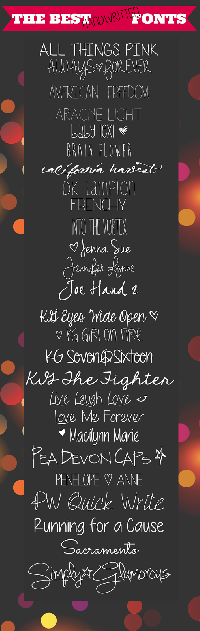 THE BEST handwritten FONTS
ALL THINGS PINK
ALWAYS FOREVER
AMERICAN FREEDOM
ARACNE LIGHT
BRAIN FLOWER
california harvest
FRENCHY
INTO THE VORTEX
Jenna Sue
Jennifer Lynne
Joe Hand 2
KG Eyes Wide Open
KG GIRL ON FIRE
KG Seven Sixteen
KG The Fighter
Live Laugh Love
Love Me Forever
Madlynn Marie
PEA DEVON CAPS
PENELOPE ANNE
PW Quick Write
Running for a Cause
Sacramento
Simply Glamorous